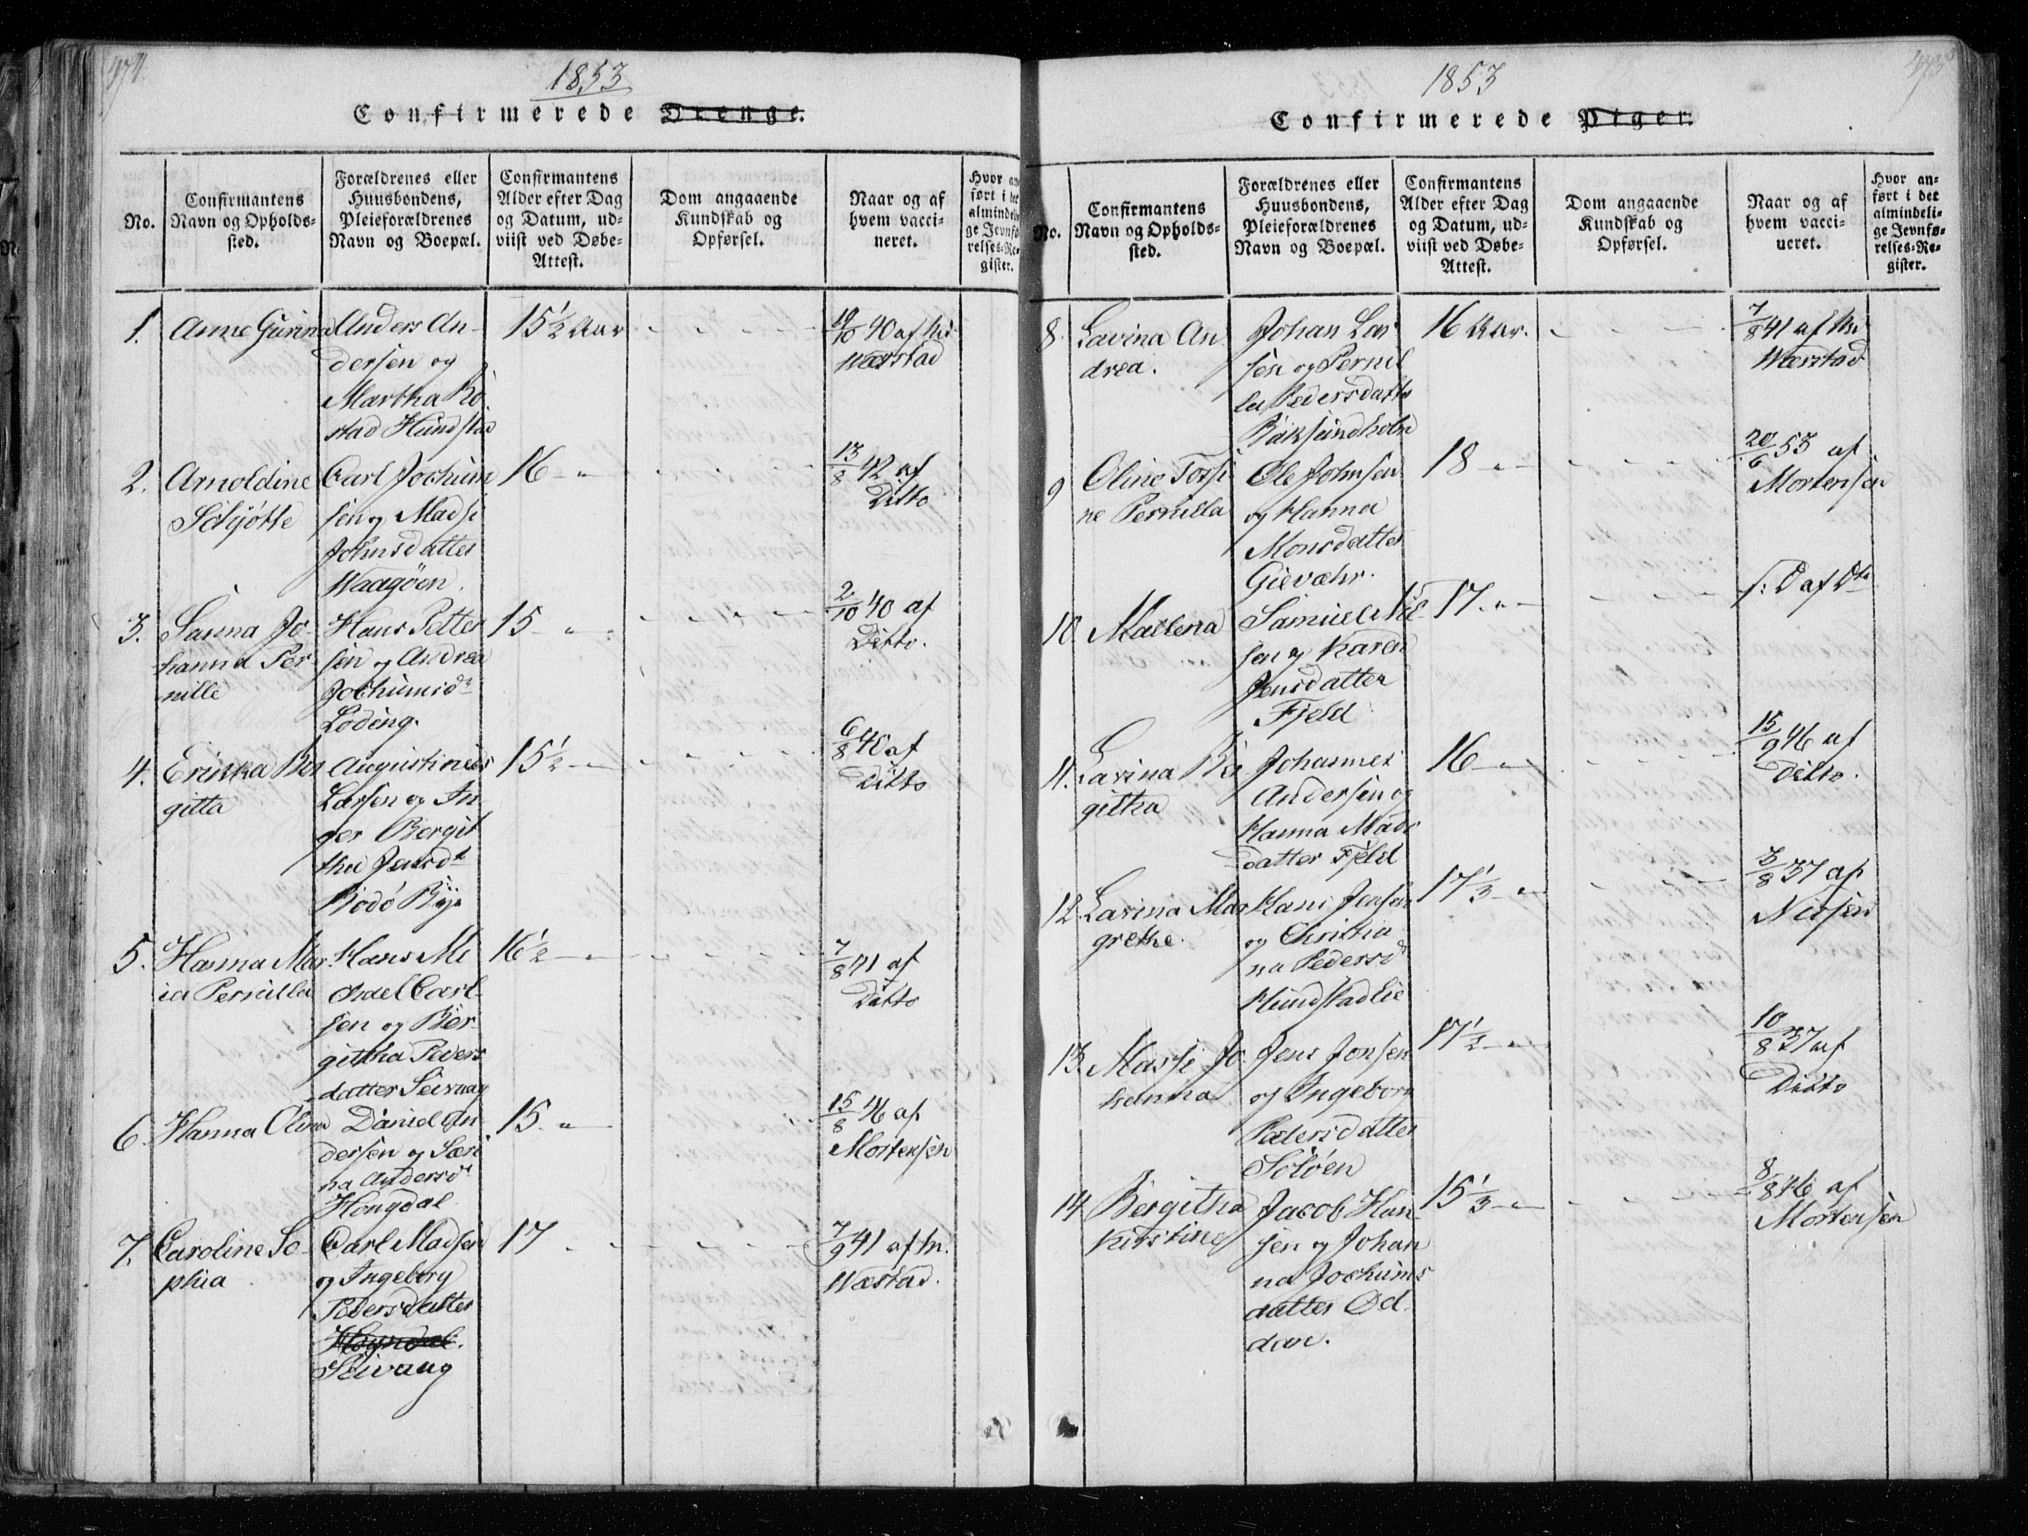 474.
1853
Confirmerede Drenge.
No.
Confirmantens
Navn og Opholds-
sted.
Forældrenes eller
Huusbondens,
Pleieforældrenes
Navn og Boepæl.
Confirmantens
Alder efter Dag
og Datum, ud-
viist ved Døbe-
Attest.
Dom angaaende
Kundskab og
Opførsel.
Naar og af
hvem vacci-
neret.
Hvor an-
ført i det
almindeli-
ge Jevnfø-
relses-Re-
gister.
1. Anne Gurina
Anders An-
dersen og
Martha Rø
stad Hundstad
15½ Aar
40 af
Wærstad
2. Arnoldine
Schjøtte
Carl Jochum
sen og Madsi
Johnsdatter
Waagøen.
16 - "
13/8 42 af
Ditto
3. Sanna Jo-
hanna Per
nille
Hans Petter
sen og Andrea
Jochumsdr
Løding.
15 - "
2/10 40 af
Ditto.
4. Erikka Ber
gitta
Augustinus
Larsen og In
ger Bergit
tha Jensdt
Bodø Bye
15½ - "
6/8 40 af
Ditto
5. Hanna Mar
ia Pernilla
Hans Mi
chael Carl-
sen og Ber-
githa Peders
datter Seivaag
16½ - "
7/8 41 af
Ditto
6. Hanna Olina
Daniel An
dersen og Seri
na Andersdr
Hongdal
15. "
15/8 46 af
Mortensen
7. Caroline So-
phia
Carl Madsen
og Ingeborg
Pedersdatter
Hogndal.
Seivaag
17
7/9 41 af hr.
Wæstad.
475
1853
Confirmerede Piger.
No.
Confirmantens
Navn og Opholds-
sted.
Forældrenes eller
Huusbondens,
Pleieforældrenes
Navn og Boepæl.
Confirmantens
Alder efter Dag
og Datum, ud-
viist ved Døbe-
Attest.
Dom angaaende
Kundskab og
Opførsel.
Naar og af
hvem vacci-
neret.
Hvor an-
ført i det
almindeli-
ge Jevnfø-
relses-Re-
gister.
8. Lavina An
drea.
Johan Lar
sen og Pernil
la Pedersdatte
Baksundholm
16 Aar.
7/8 41 af
Wærstad
9 Oline Torsi
ne Pernilla
Ole Johnsen
og Hanna
Monsdatter
Gievæhr.
18 - "
20/6 53 af
Mortensen
10 Madlena
Samuel Nil
sen og Karen
Jensdatter
Fjeld
17 - "
s: D af Dto
11. Lavina Ber
githa
Johannes
Andersen og
Hanna Mads
datter Fjeld
16 - "
15/9 46 af
Ditto.
12 Lavina Mar
grethe.
Hans Jensen
og Christia
na Pedersdr
Hundstadlie
17⅓ - "
3/8 37 af
13. Massi Jo
hanna
Jens Jonsen
og Ingeborg
Pedersdatter
Soløen
17½ - "
10/8 37 af
Ditto
14 Bergitha
Kirstine
Jacob Han-
sen og Johan
na Jochums
datter Od
dan.
15⅓ - "
8/8 46 af
Mortensen